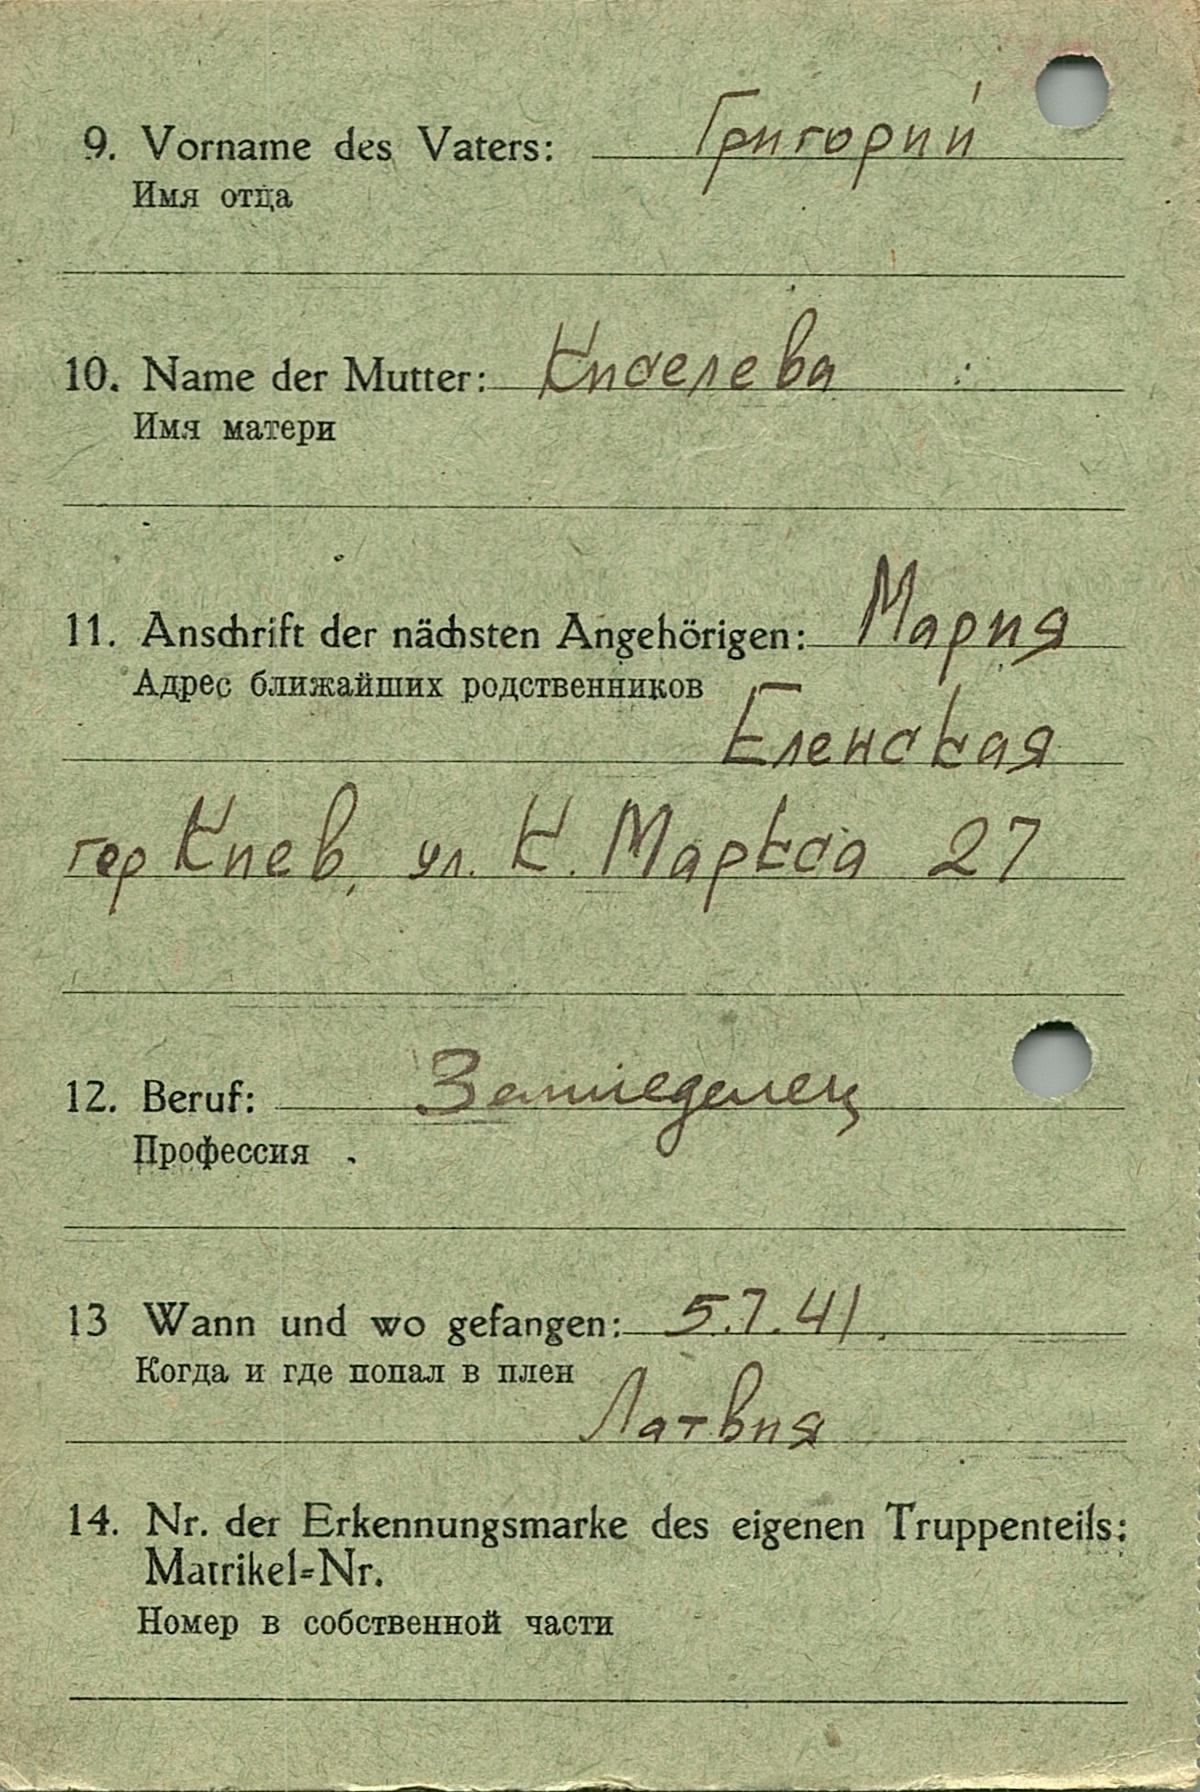 9. Vorname des Vaters: Григорий
Имя отца
10. Name der Mutter: Киселева
Имя матери
11. Anschrift der nächsten Angehörigen: Мария
Адрес ближайших родственников
Еленская
гор Киев, ул. К. Маркса 27
12. Beruf: Земледелец
Профессия
13 Wann und wo gefangen: 5.7.41.
Когда и где попал в плен
Латвия
14. Nr. der Erkennungsmarke des eigenen Truppenteils:
Matrikel=Nr.
Номер в собственной части